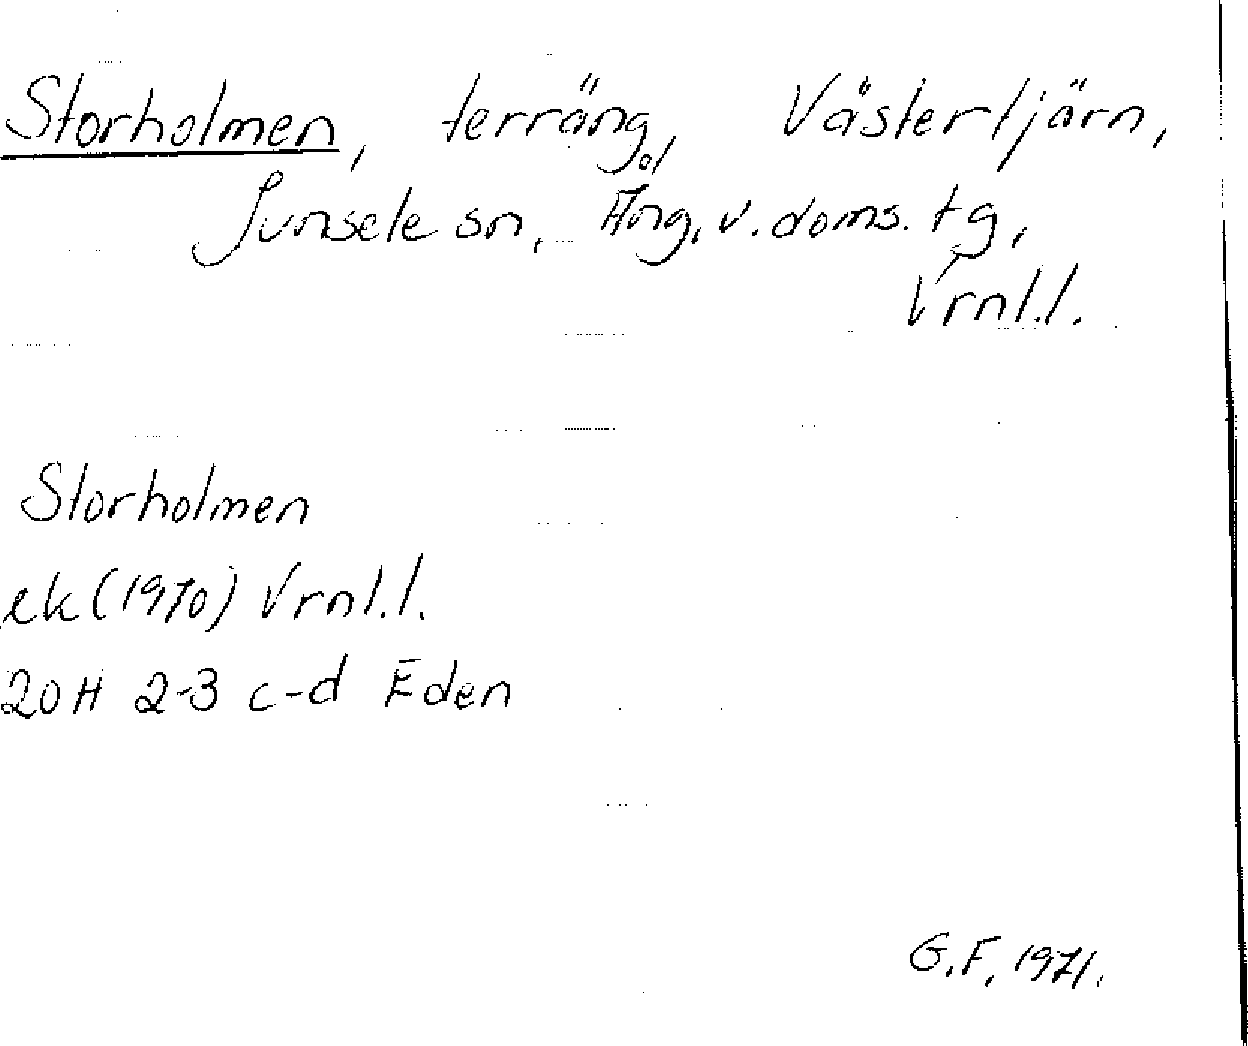 Storholmen, terräng, Västertjärn,
Junsele sn, Ång. v. doms. tg,
Vrnl.l.
Storholmen
ek (1970) Vrnl.l.
20H 2-3 c-d Eden
G.F. 1971.